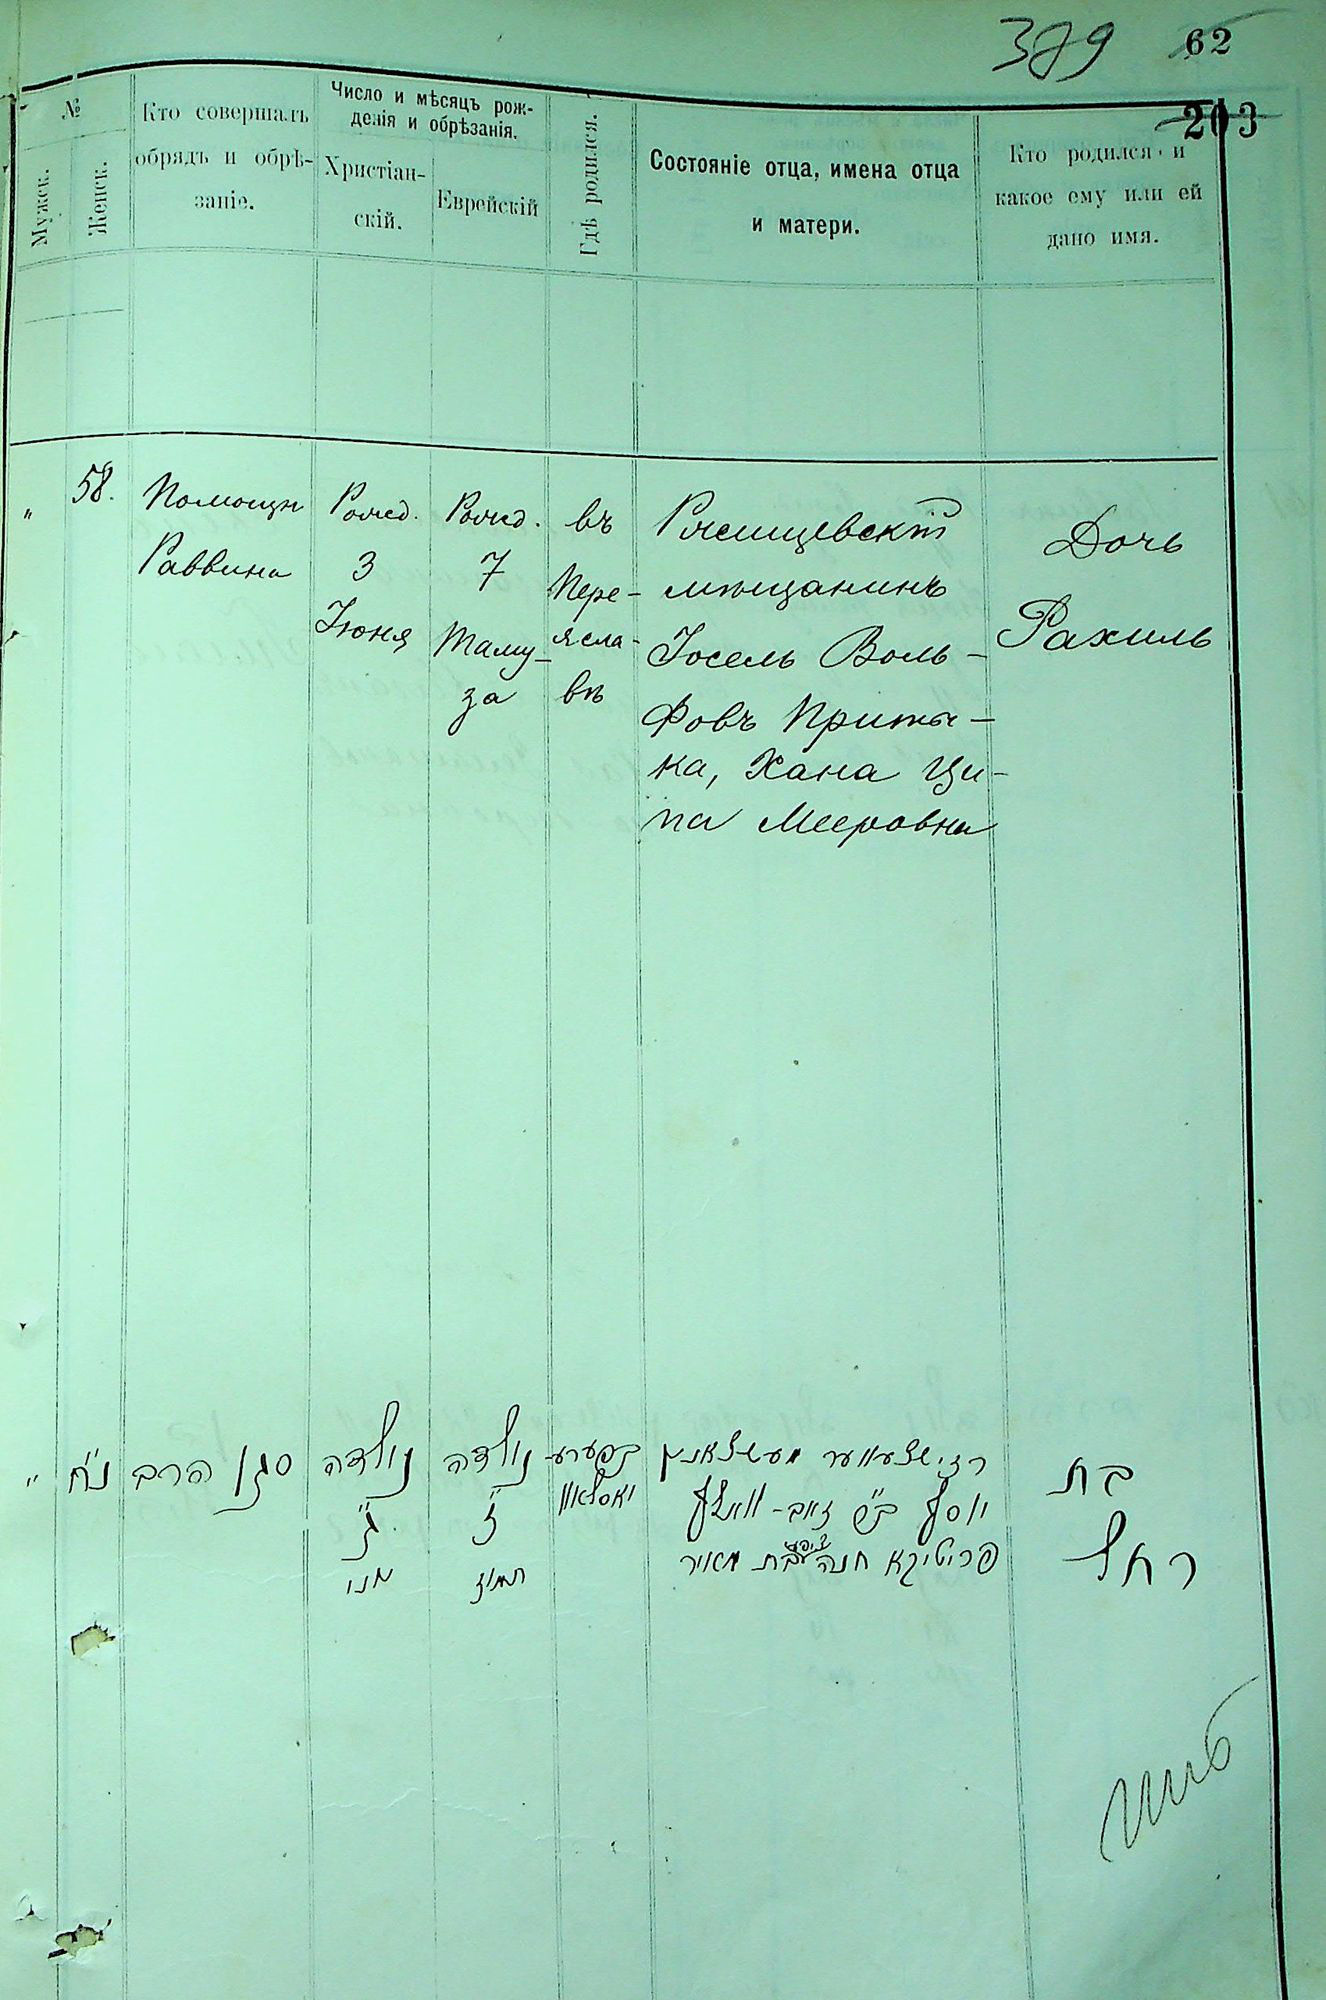 389 62
203
№
Мужск.
Женск.
Кто совершалъ
обрядъ и обрѣ-
заніе.
Число и мѣсяцъ рож-
денія и обрѣзанія.
Христіан-
скій.
Еврейскій
Гдѣ родился.
Состояніе отца, имена отца
и матери.
Кто родился и
какое ему или ей
дано имя.
" 58.
Помощн
Раввина
Рожд.
3
Іюня
Рожд.
7
Таму-
за
въ
Пере-
ясла-
вѣ
Ржищевскій
мѣщанинъ
Іосель Воль-
фовъ Приты-
ка, Хана Ци-
па Мееровна
Дочь
Рахиль
" נ"ח
סגן הרב
נולדה
ג'
יוני
נולדה
ז'
תמוז
בפערע-
יאסלאוו
רזישצעווער מעשצאנין
יוסף ב"ר זאב-וואלף
פריטיקא חנה ציפע בת מאיר
בת
רחל